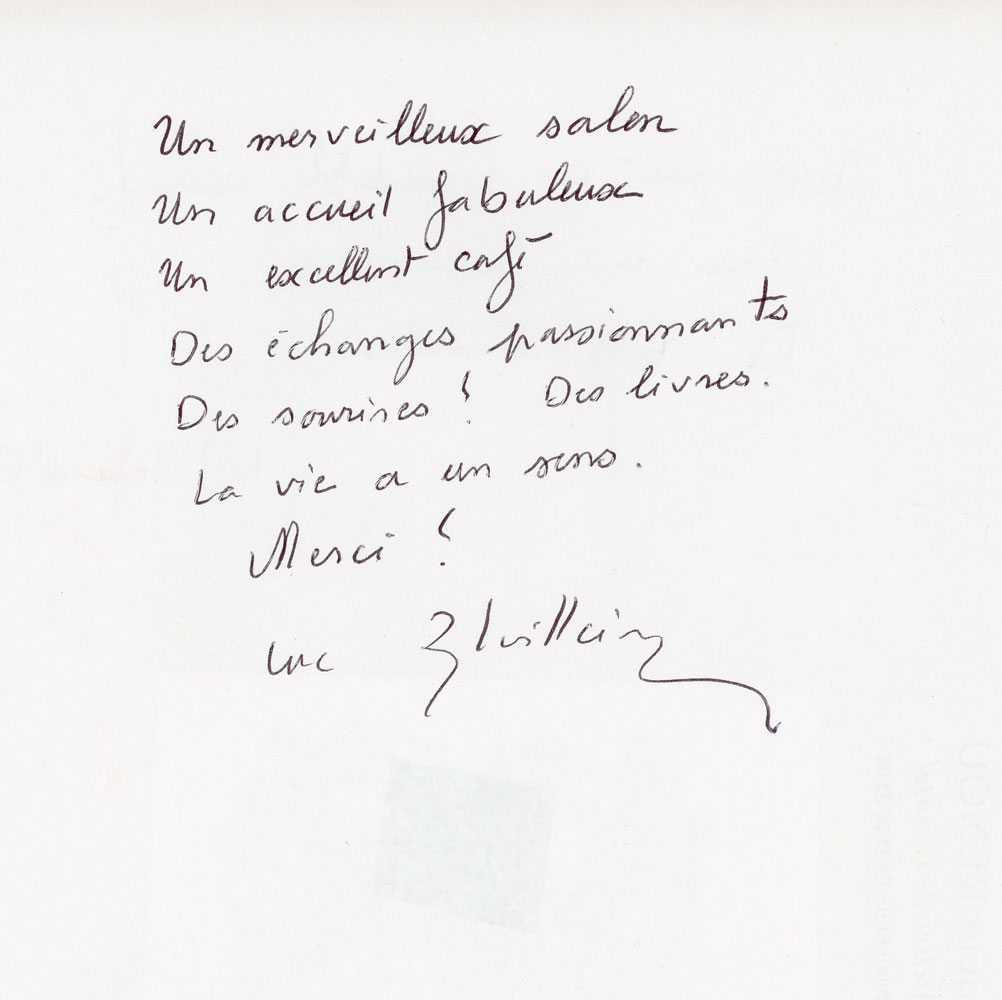 Un merveilleux salon
Un accueil fabuleux
Un excellent café
Des échanges passionnants
Des sourires ! Des livres.
La vie a un sens.
Merci !
Luc